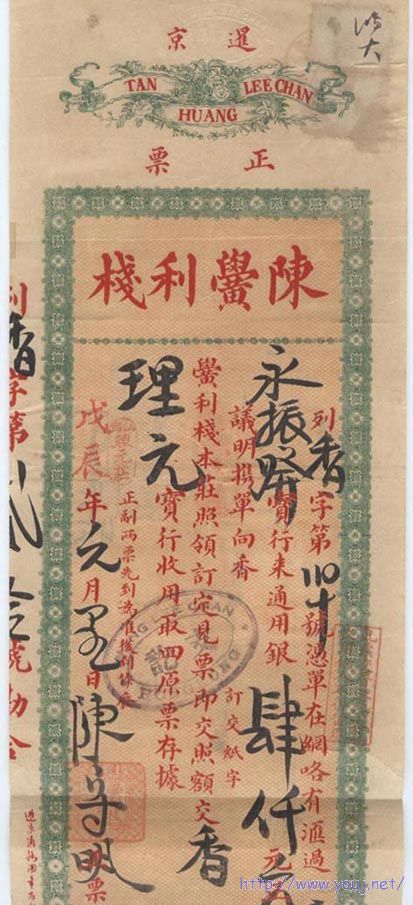 暹京
TAN LEE CHAN
HUANG
正票
陳黌利棧
列香字第四十號憑單在網咯有滙過
永振發寶行來通用銀肆仟元
議明携單向香訂交紙字
黌利棧本莊照領訂定見票即交照額交香
理元寶行收用取囬原票存據
正副兩票先到為準後到條廢
戊辰年元月日陳守明票
列香字第號勘合
http://www.youj.net/